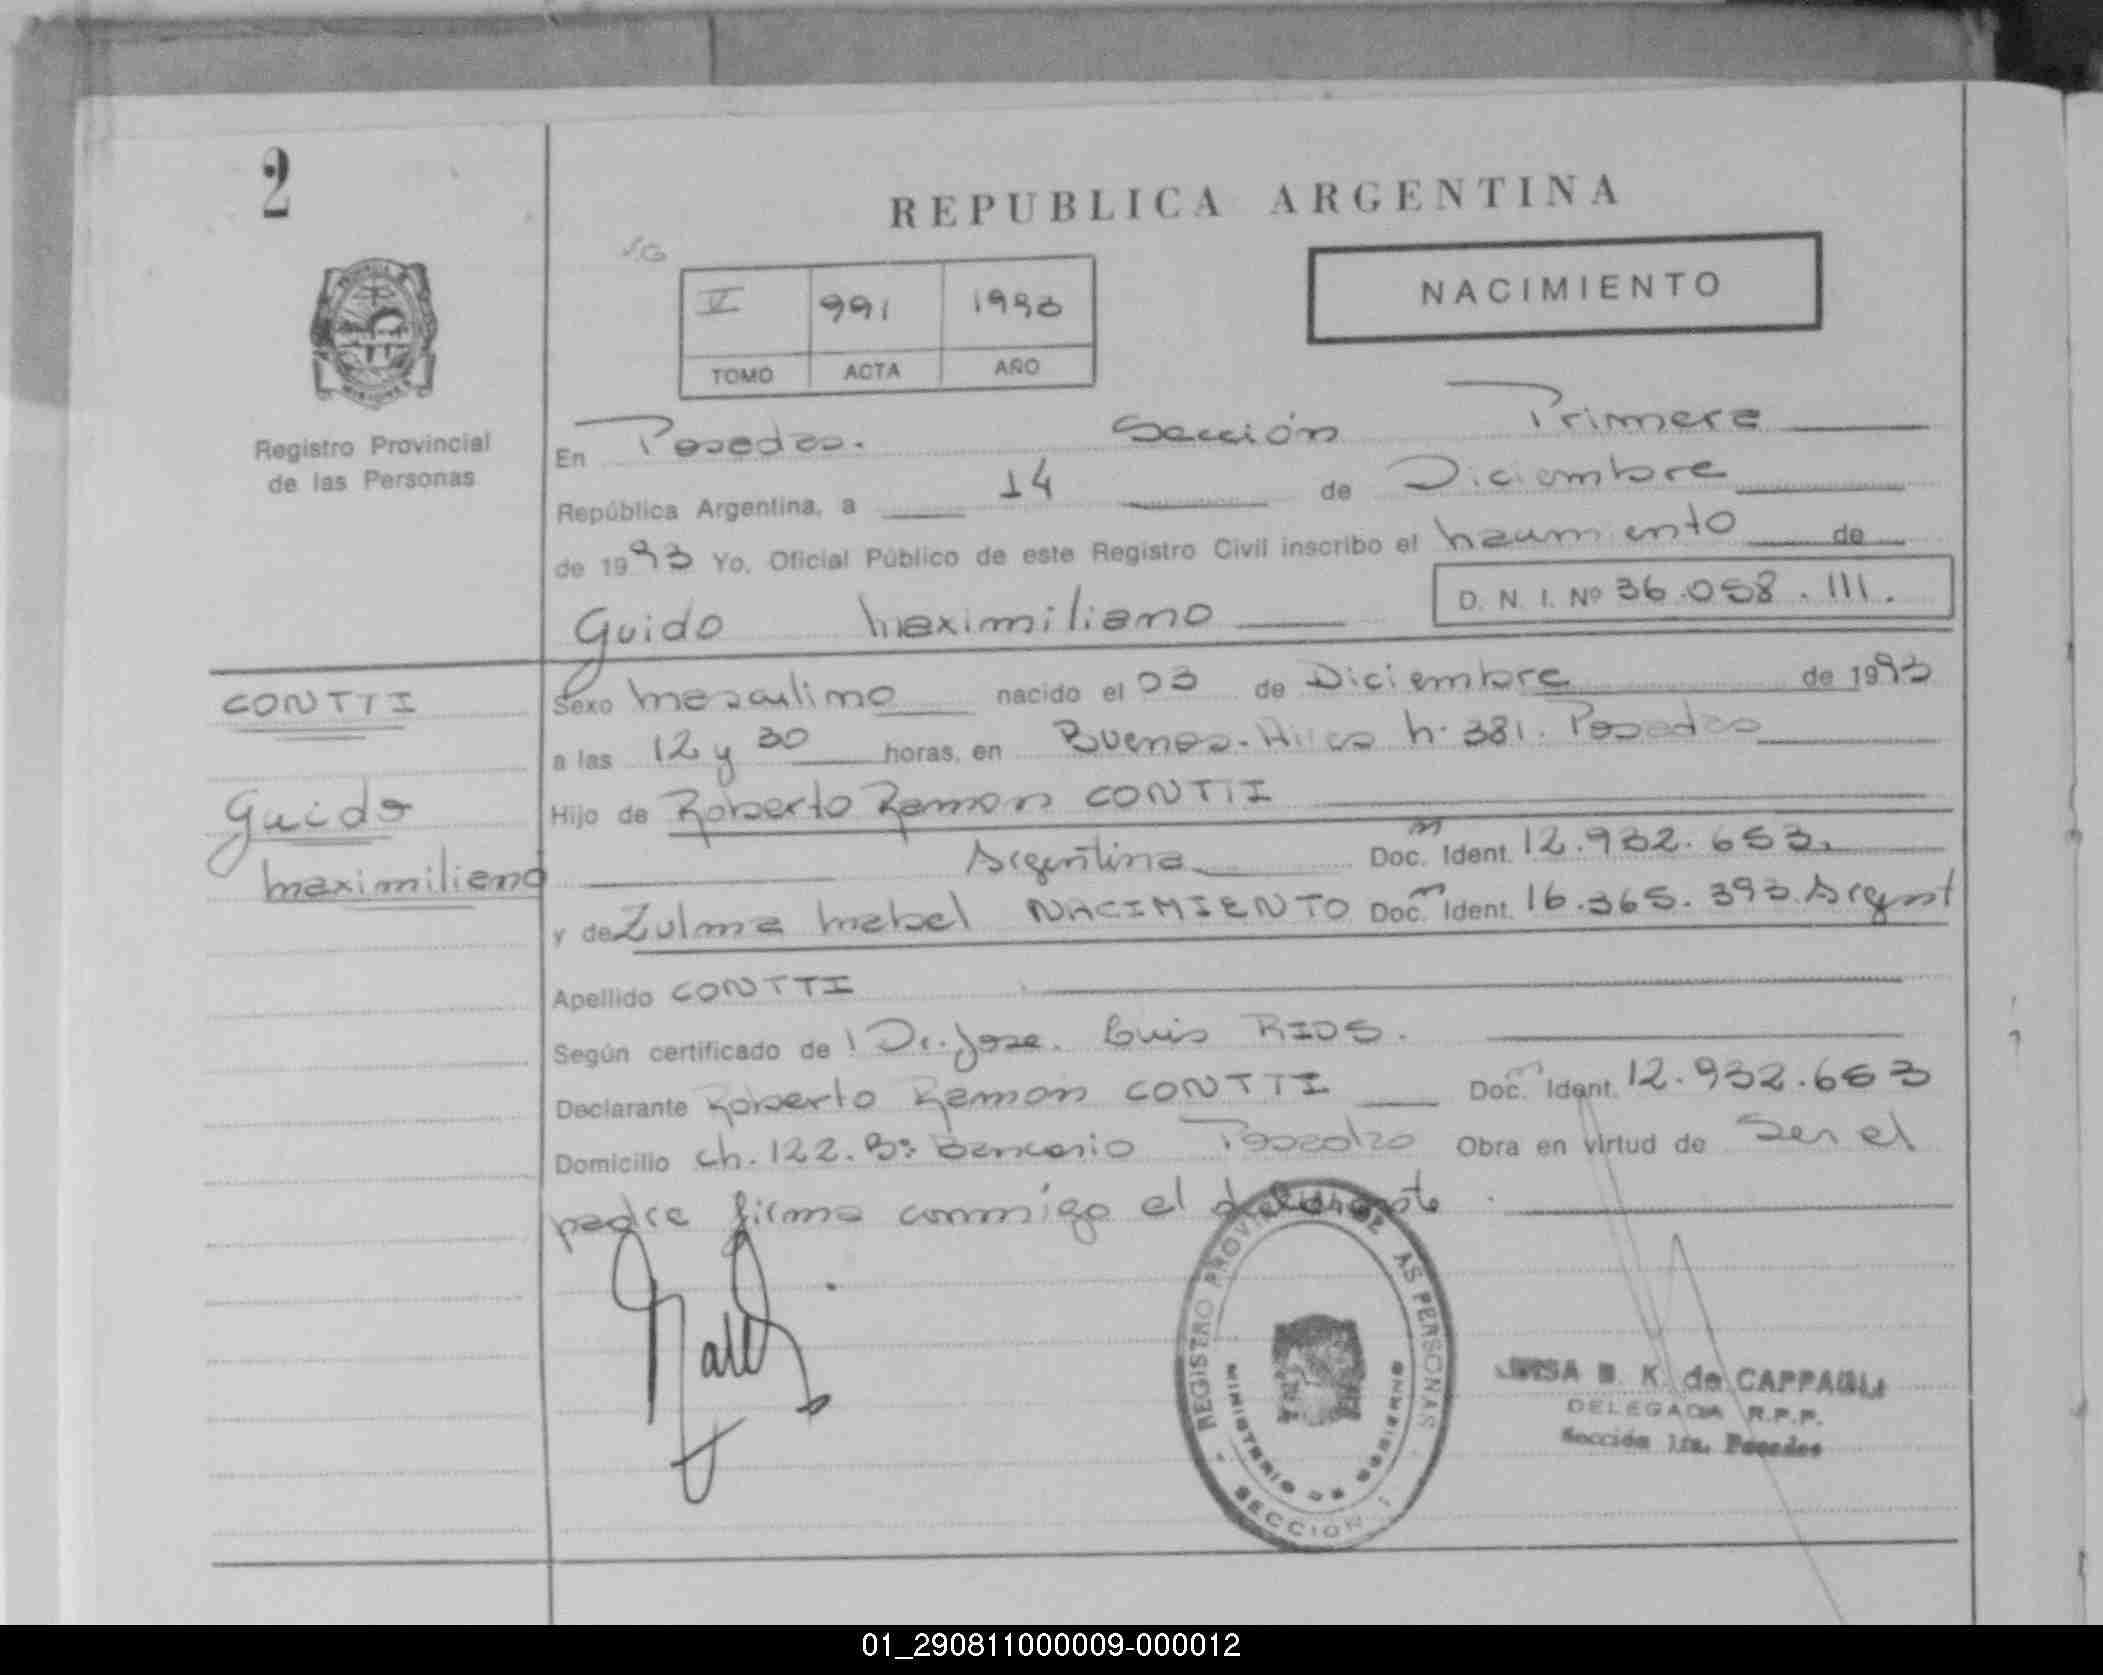 2
REPUBLICA ARGENTINA
NACIMIENTO
V 991 1993
TOMO ACTA AÑO
Registro Provincial
de las Personas
En Posadas. Sección Primera
República Argentina, a 14 de Diciembre
de 1993 Yo, Oficial Público de este Registro Civil inscribo el nacimiento de
D. N. I. Nº 36.058.111.
Guido Maximiliano
CONTTI
Guido
Maximiliano
Sexo Masculino nacido el 03 de Diciembre de 1993
a las 12 y 30 horas, en Buenos Aires N. 381. Posadas
Hijo de Roberto Ramon CONTTI
Argentina Doc. Ident. 12.932.653.
y de Zulma Mabel NACIMIENTO Doc. Ident. 16.365.393. Argent
Apellido CONTTI
Según certificado de Dr. Jose Luis RIOS.
Declarante Roberto Ramon CONTTI Doc. Ident. 12.932.653
Domicilio Ch. 122. Bº Bancario Posadas Obra en virtud de Ser el
padre firma conmigo el declarante
REGISTRO PROVINCIAL DE LAS PERSONAS
MINISTERIO DE GOBIERNO
SECCION 1
K. de CAPPAGLI
DELEGADA R.P.P.
Sección 1ra. Posadas
01_290811000009-000012